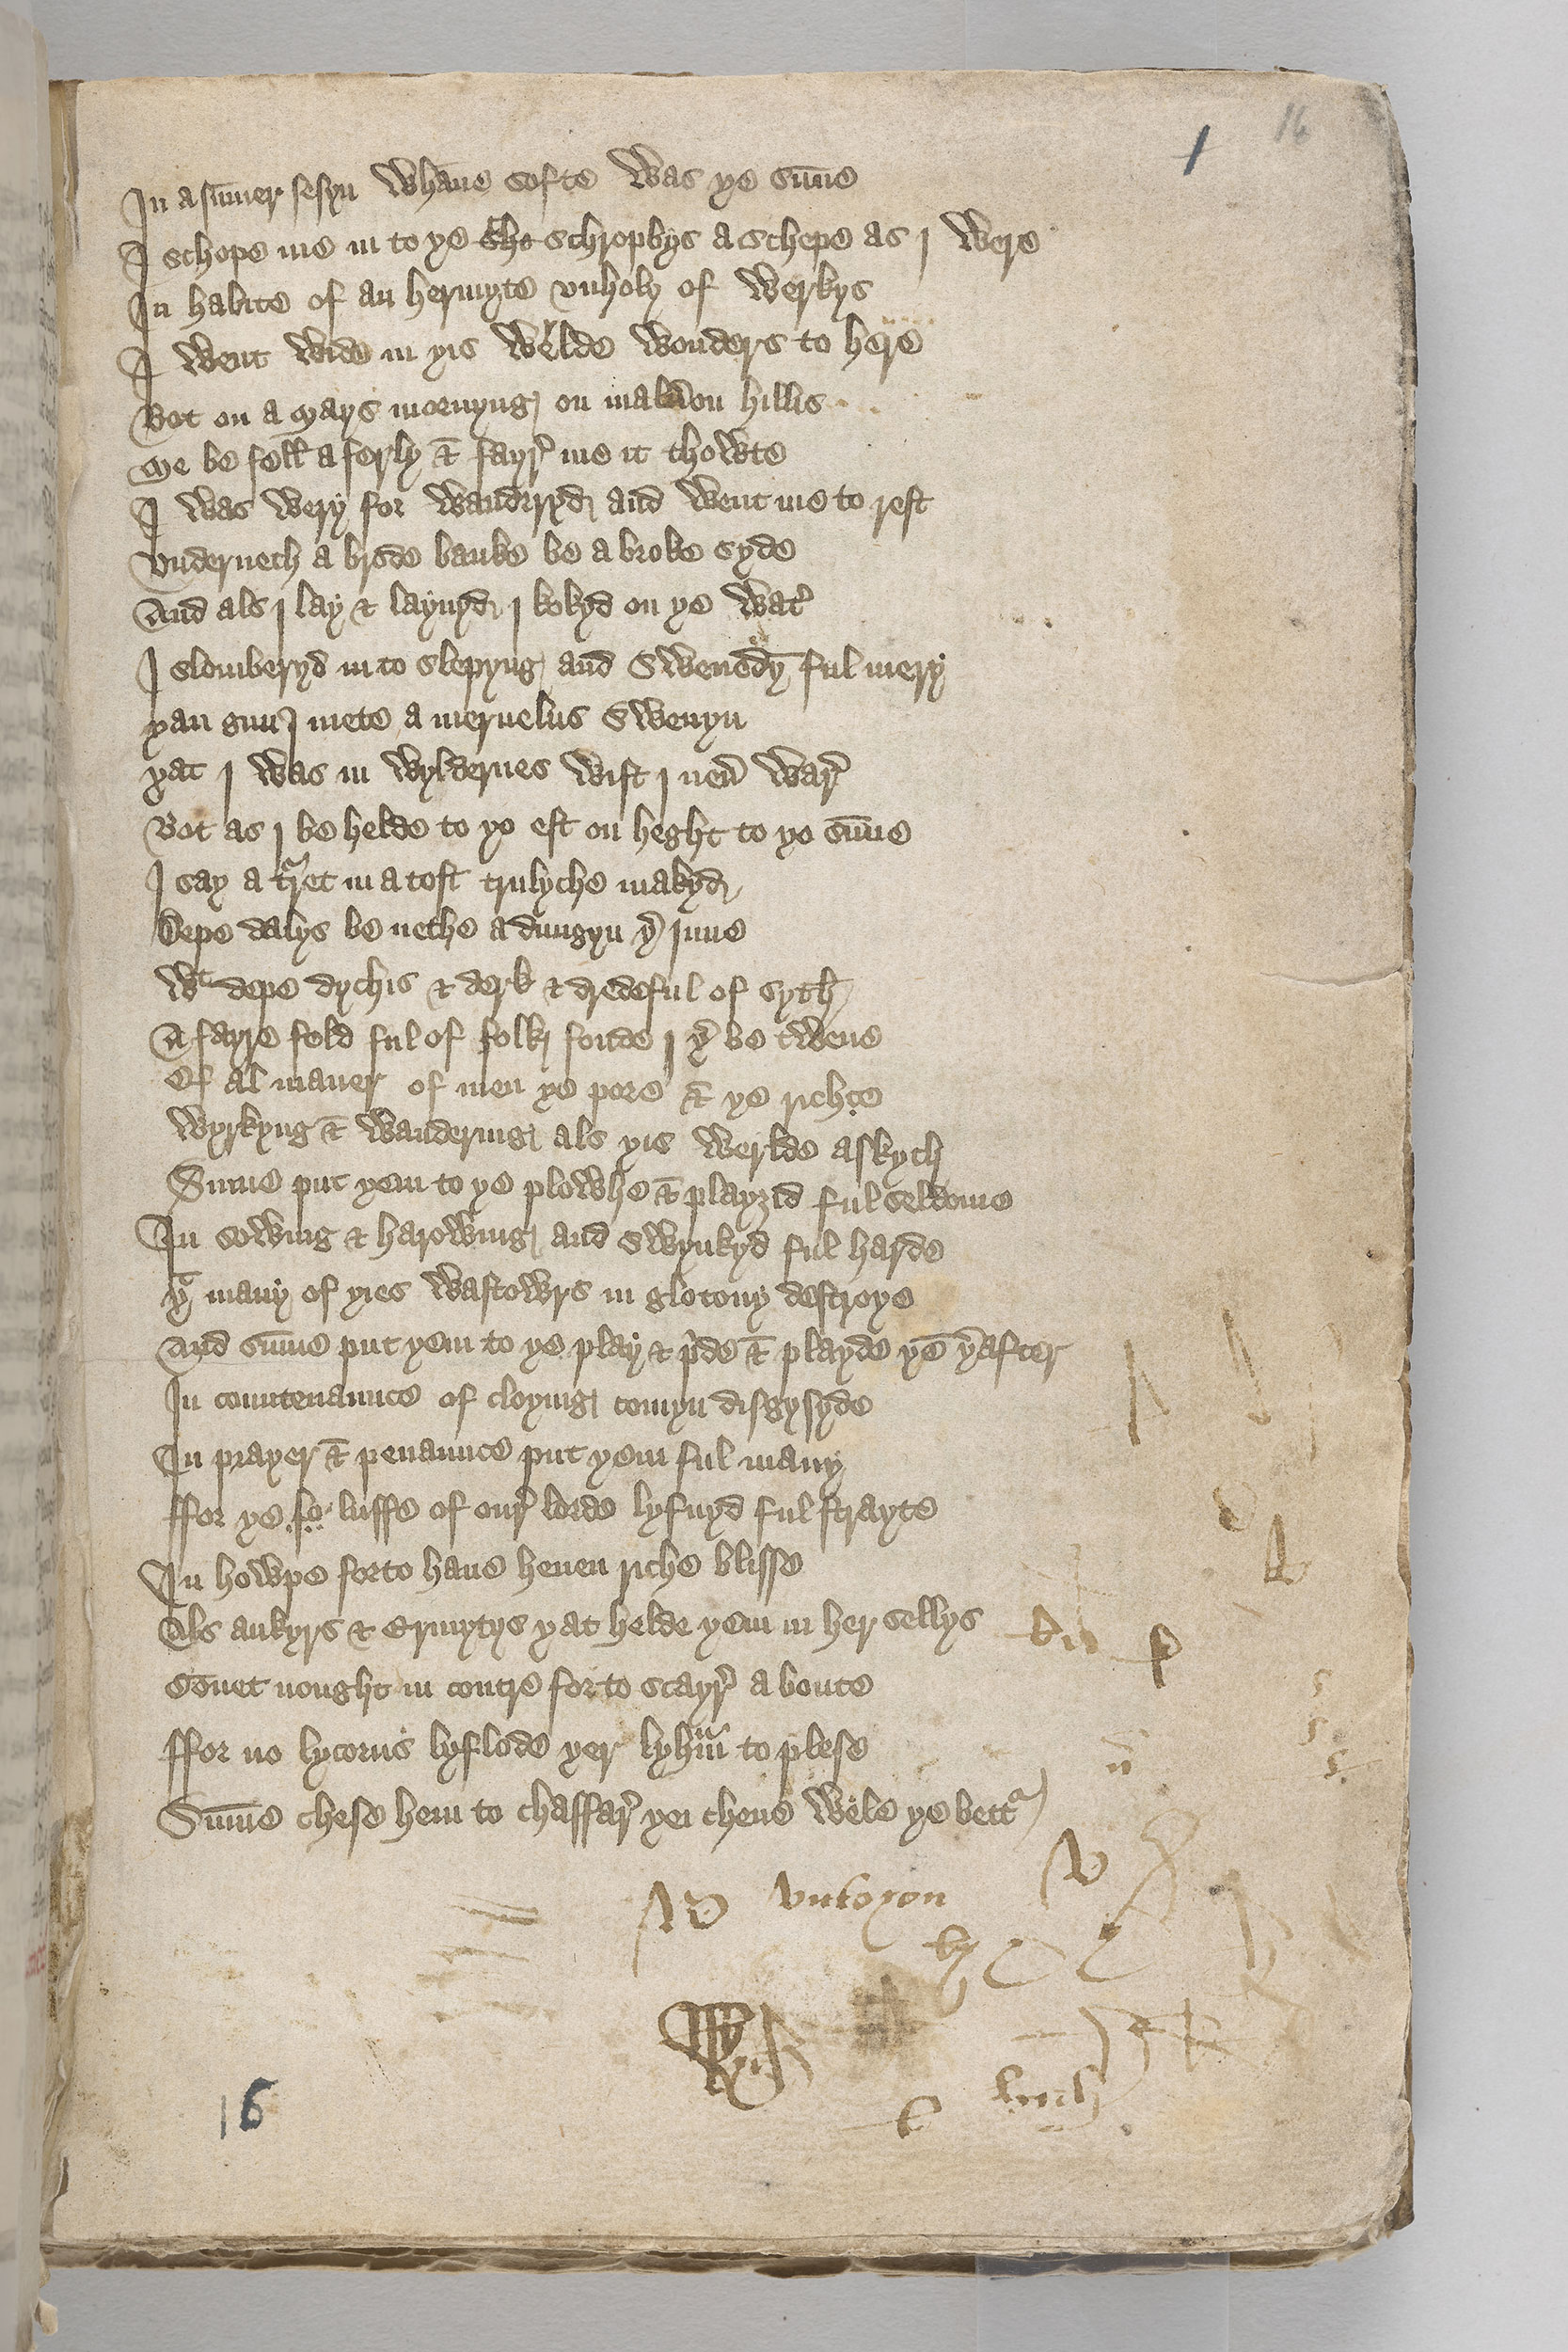 1 16
In a sūmer sesyn whāne softe was ye sūne
I schope me in to ye schropbys a schepe as j were
In habite of an hermyte vnholy of werkys
I went wide in yis werlde wonders to here
Bot on a mays mornyng on maluōn hillis
Me be fell a ferly & fayr me it thowte
I was wery for wandrryd and went me to rest
Vndernech a brode banke be a broke syde
And als j lay & laynyd j lokyd on ye wat'
I slomberyd in to slepyng and swenedȳ ful mery
yan gun j mete a meruelus swenyn
yat j was in wyldernes wist j neu' war'
Bot as j be helde to ye est on heght to ye sūne
I say a tret in a toft trulyche makyd
Depe dalys be nethe a dungyn y' jnne
Wt depe dychis & derk & dredeful of syth
A fayre feld ful of folk fonde j y' be twene
Of al maner of men ye pore & ye riche
Wyrkyng & wandering als yis werlde askych
Sume put yem to ye plowhe & playzid ful seldome
In sowing & harowing and swynkyd ful harde
yt many of yies wastowrs in glotony destroye
And sūme put yem to ye play & p'de & playde yē y'after
In countenaunce of cloying comyn disgysyde
In prayer & penaunce put yem ful many
ffor ye lo luffe of our' lorde lyfuyd ful strayte
In howpe forto haue heuen riche blisse
Als ankyrs & Ermytys yat helde yem in her sellys
Couet nought in contre forto scayr' a boute
ffor no lycorus lyflode yer lyham to plese
Sūme chese hem to chaffar' yei cheue wele ye bettr
by
16